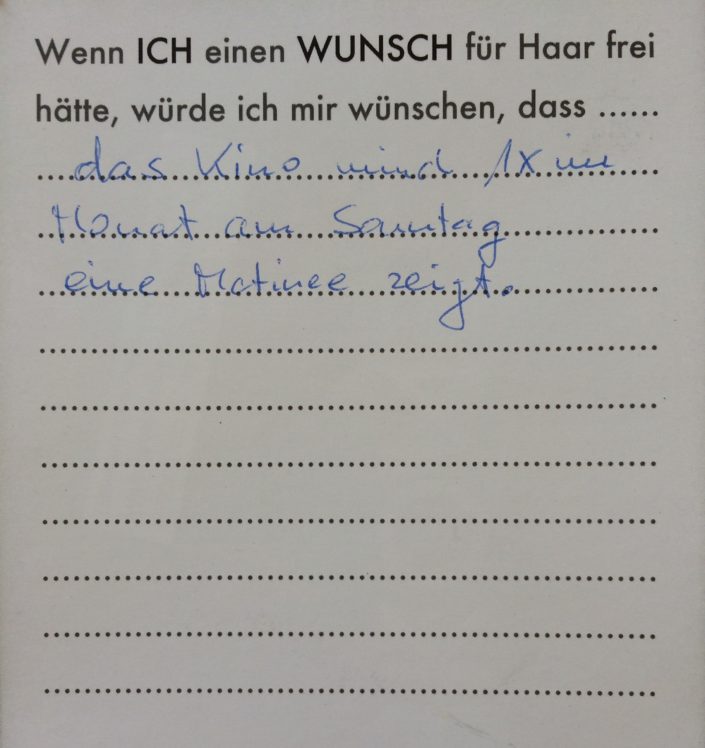 Wenn ICH einen WUNSCH für Haar frei
hätte, würde ich mir wünschen, dass ......
das Kino mind 1x im
Monat am Sonntag
eine Matinee zeigt.